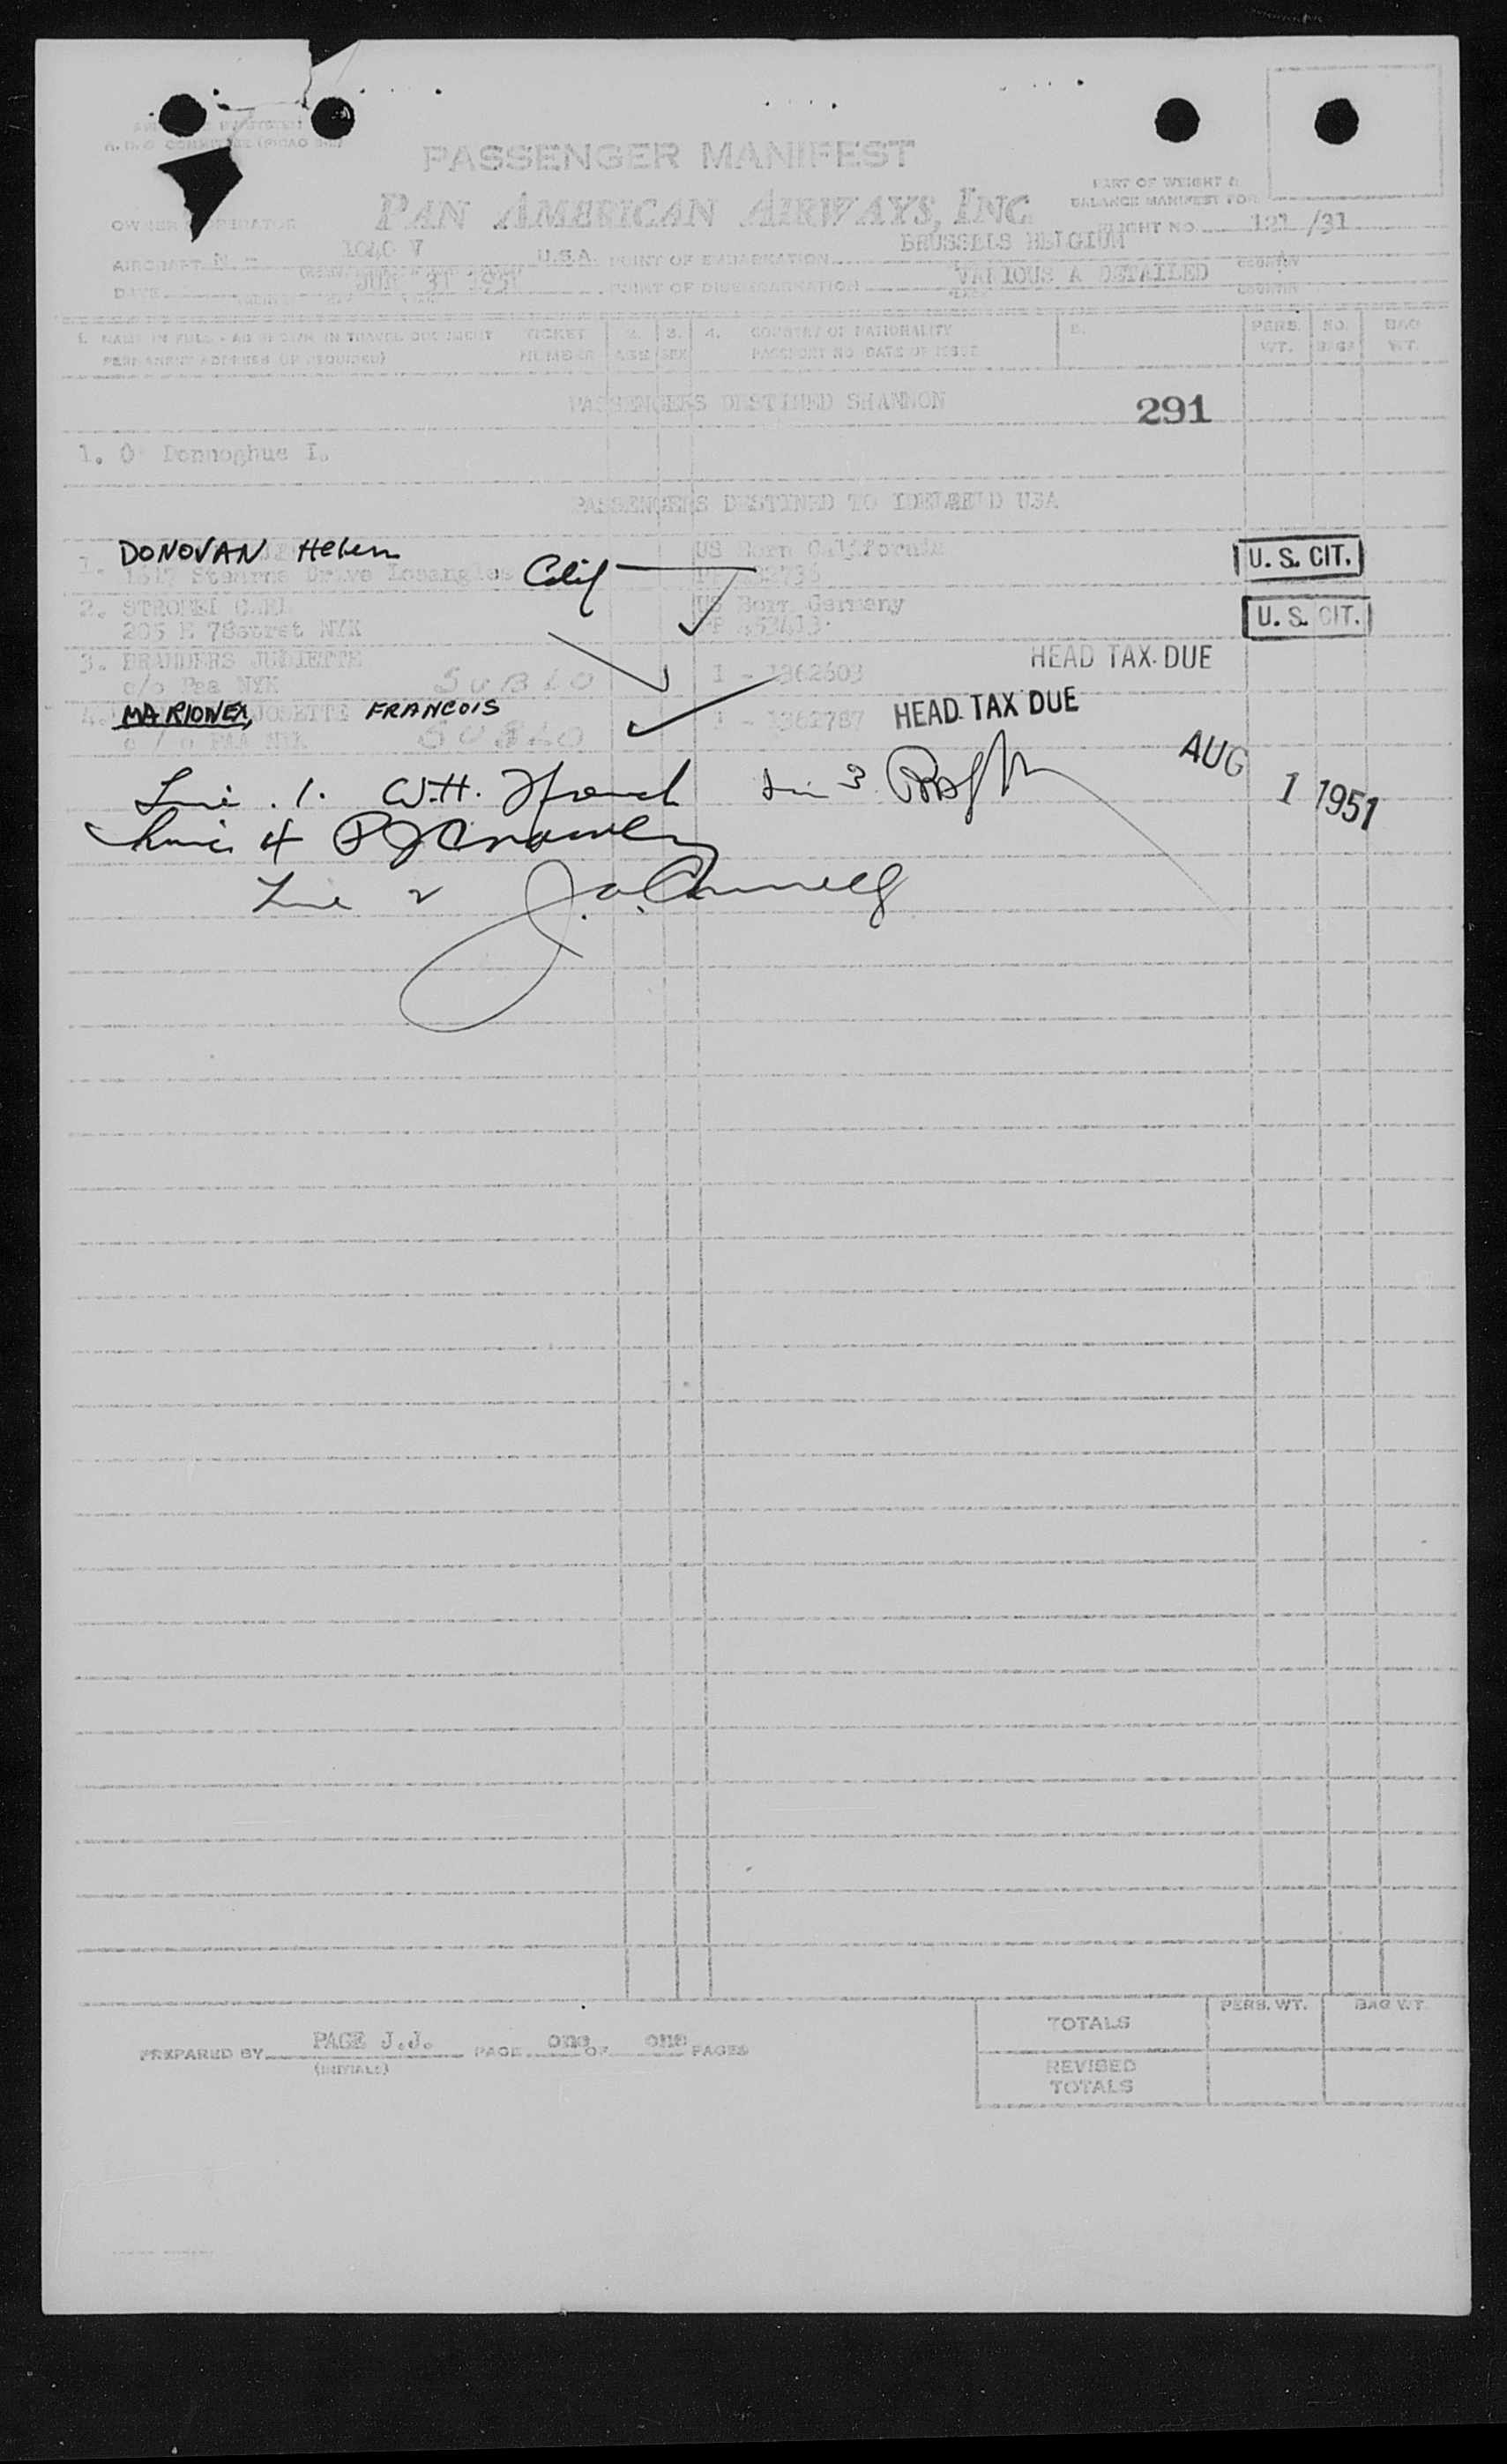 PASSENGER MANIFEST
PAN AMERICAN AIRWAYS, INC
PART OF WEIGHT &
BALANCE MANIFEST FOR
FLIGHT NO. 121 /31
AIRCRAFT N - 1040 V U.S.A. POINT OF EMBARKATION BRUSSELS BELGIUM
DATE 31 1951 POINT OF DISEMBARKATION VARIOUS A DETAILED COUNTRY
1. NAME IN FULL - AS SHOWN IN TRAVEL DOCUMENT TICKET 2. 3. 4. COUNTRY OF NATIONALITY 5. PERS. NO. BAG
PERMANENT ADDRESS (IF REQUIRED) NUMBER AGE SEX PASSPORT NO DATE OF ISSUE WT. BAGS WT.
PASSENGERS DESTINED SHANNON 291
1. O Donnoghue I.
PASSENGERS DESTINED TO IDELWEELD USA
1. DONOVAN Helen US Born California U. S. CIT.
Stearns Drive Losangles Calif
2. STROHKI CARL US Born Germany U. S. CIT.
205 E 78stret NYK
3. BRANDERS JULIETTE I - 1362603 HEAD TAX DUE
c/o Paa NYK
4. MARIONEX, JOSETTE FRANCOIS I - 1362787 HEAD TAX DUE
c / o PAA NYK
AUG 1 1951
Line . 1. W.H. French Lin 3
Line 4 P J Crowley
Line 2 J. O. Connell
PREPARED BY PAGE J.J. PAGE one OF one PAGES
(INITIALS)
TOTALS PERS. WT. BAG WT.
REVISED
TOTALS